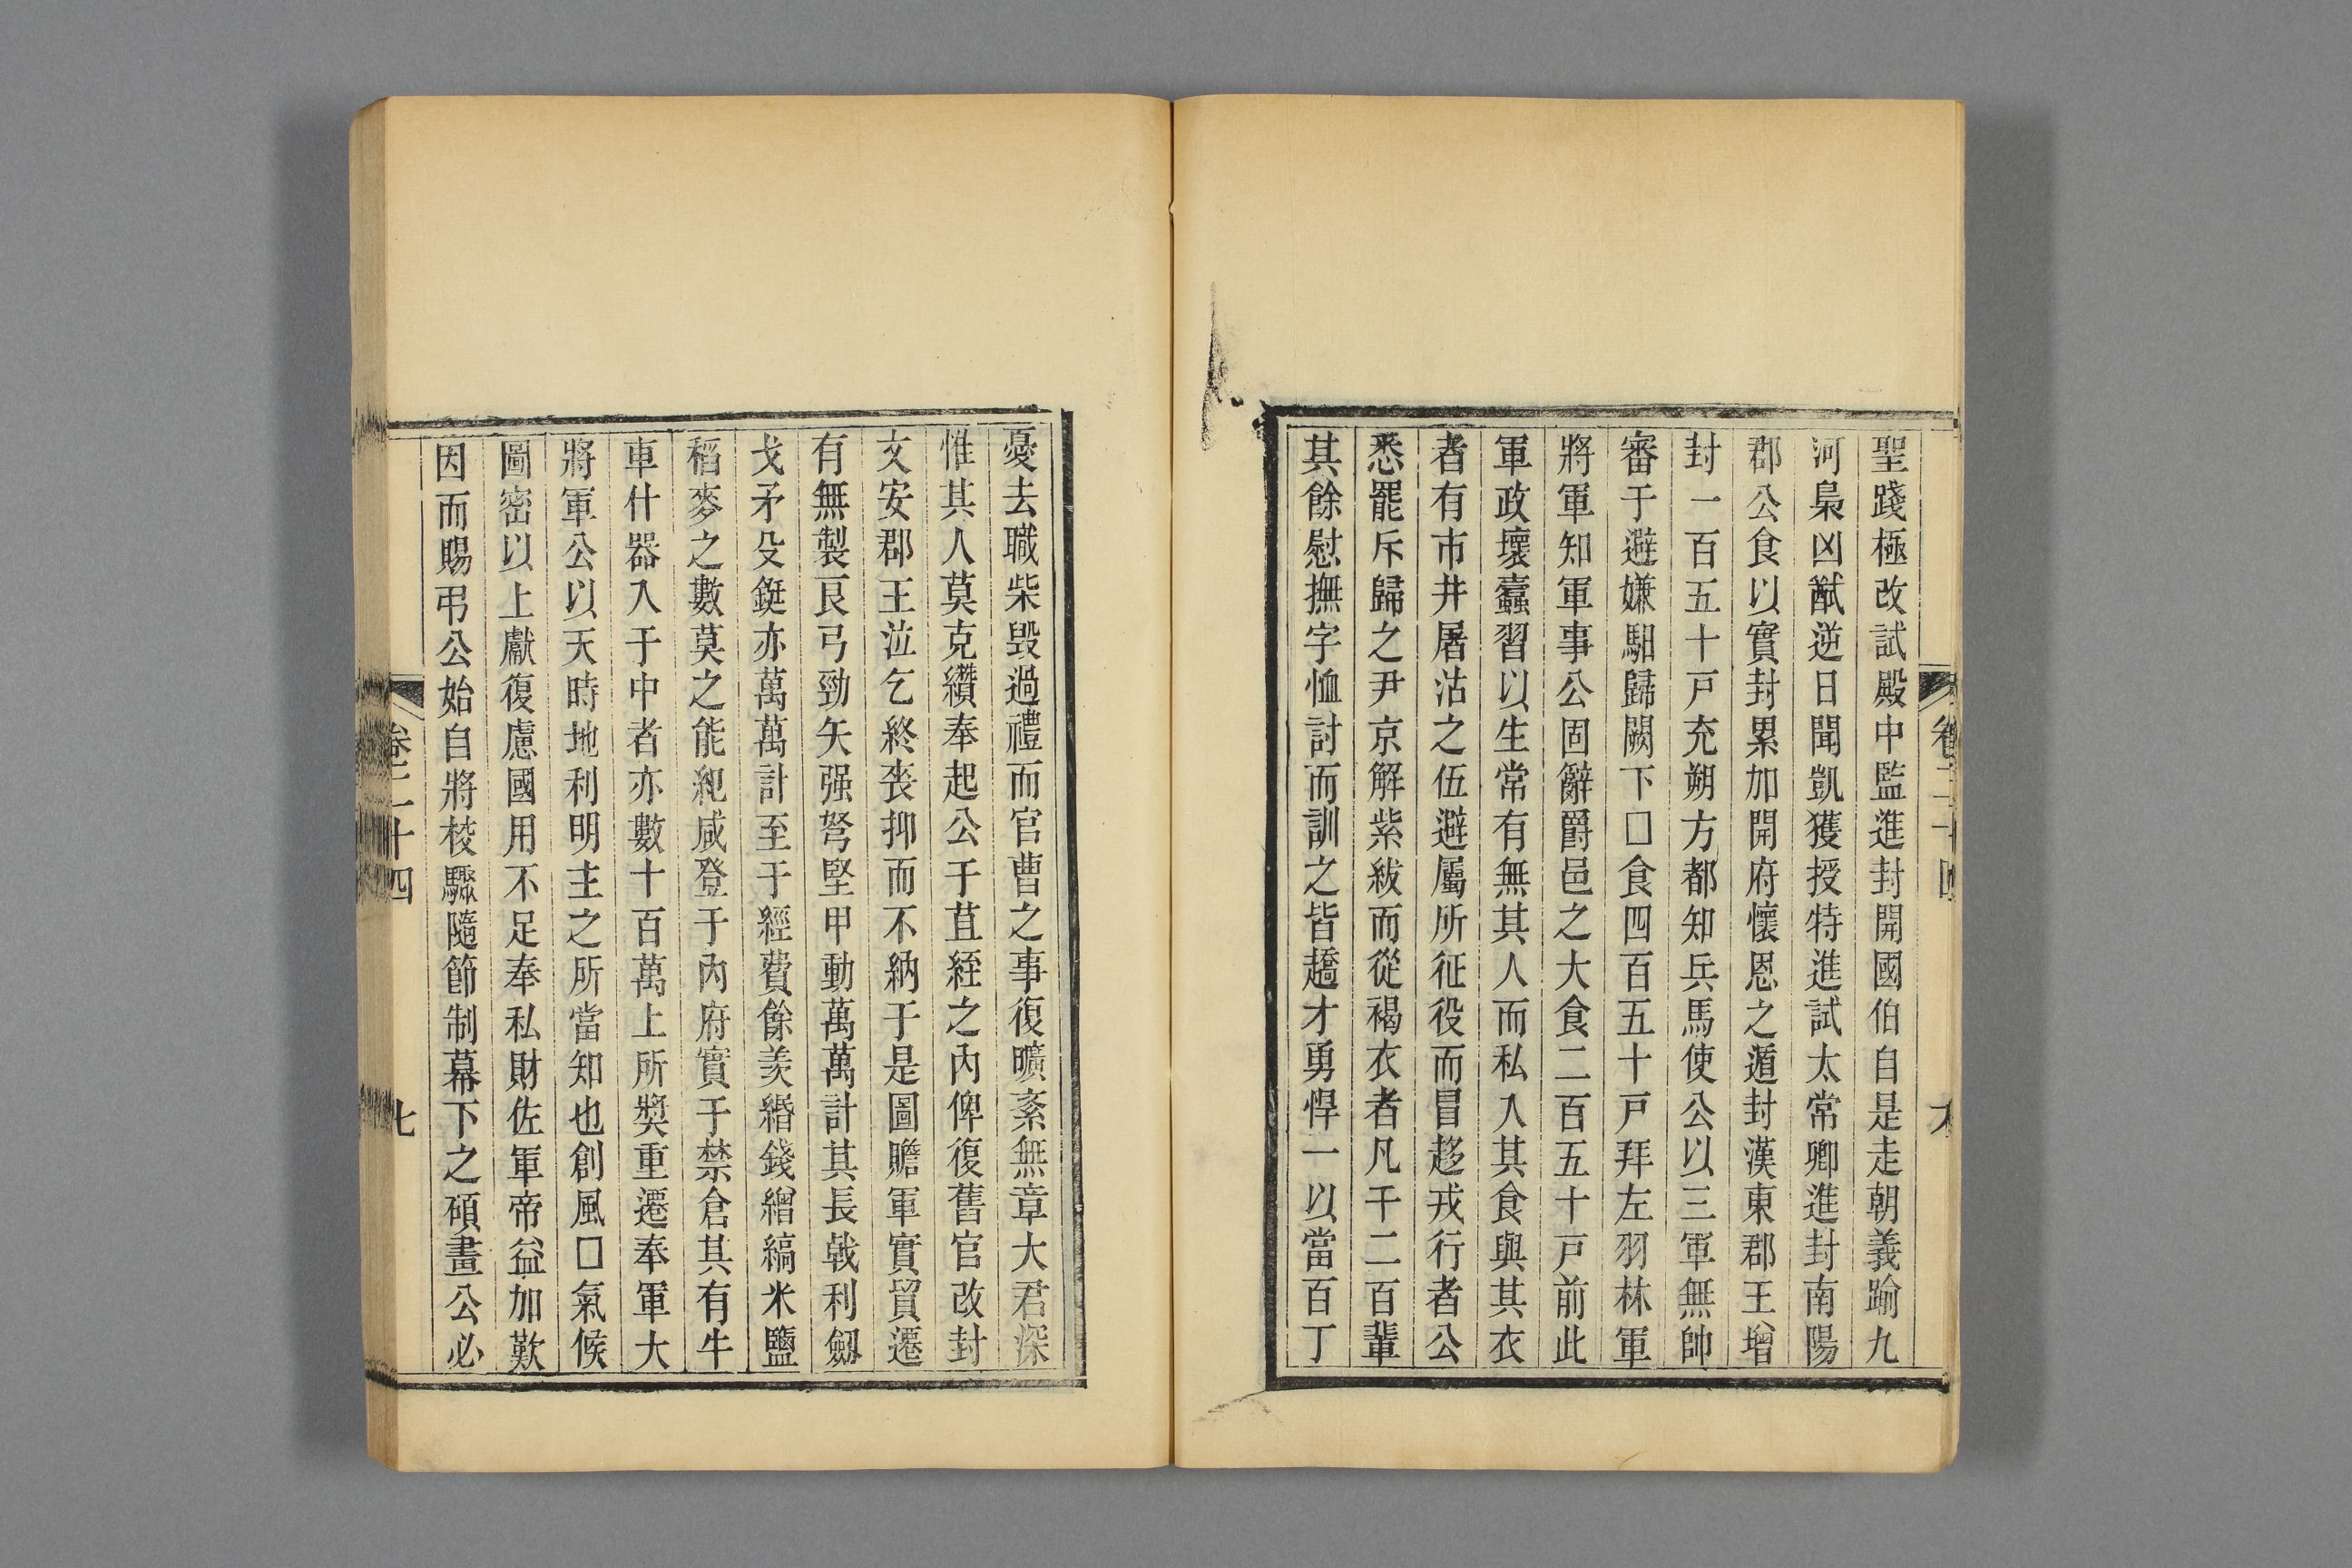 卷二十四
六
聖踐極改試殿中監進封開國伯自是走朝義踰九
河梟凶猷逆日聞凱獲授特進試太常卿進封南陽
郡公食以實封累加開府懷恩之遁封漢東郡王增
封一百五十戸充朔方都知兵馬使公以三軍無帥
審于避嫌馹歸闕下□食四百五十戸拜左羽林軍
將軍知軍事公固辭爵邑之大食二百五十戸前此
軍政壞蠹習以生常有無其人而私入其食與其衣
者有市井屠沽之伍避屬所征役而冒趍戎行者公
悉罷斥歸之尹京解紫紱而從褐衣者凡千二百輩
其餘慰撫字恤討而訓之皆趫才勇悍一以當百丁
憂去職柴毀過禮而官曹之事復曠紊無章大君深
惟其人莫克纘奉起公于苴絰之內俾復舊官改封
文安郡王泣乞終喪抑而不納于是圖贍軍實貿遷
有無製良弓勁矢强弩堅甲動萬萬計其長戟利劒
戈矛殳鋋亦萬萬計至于經費餘羨緡錢繒縞米鹽
稻麥之數莫之能紀咸登于內府實于禁倉其有牛
車什器入于中者亦數十百萬上所奬重遷奉軍大
將軍公以天時地利明主之所當知也創風□氣候
圖密以上獻復慮國用不足奉私財佐軍帝益加歎
因而賜弔公始自將校驟隨節制幕下之碩畫公必
卷二十四
七